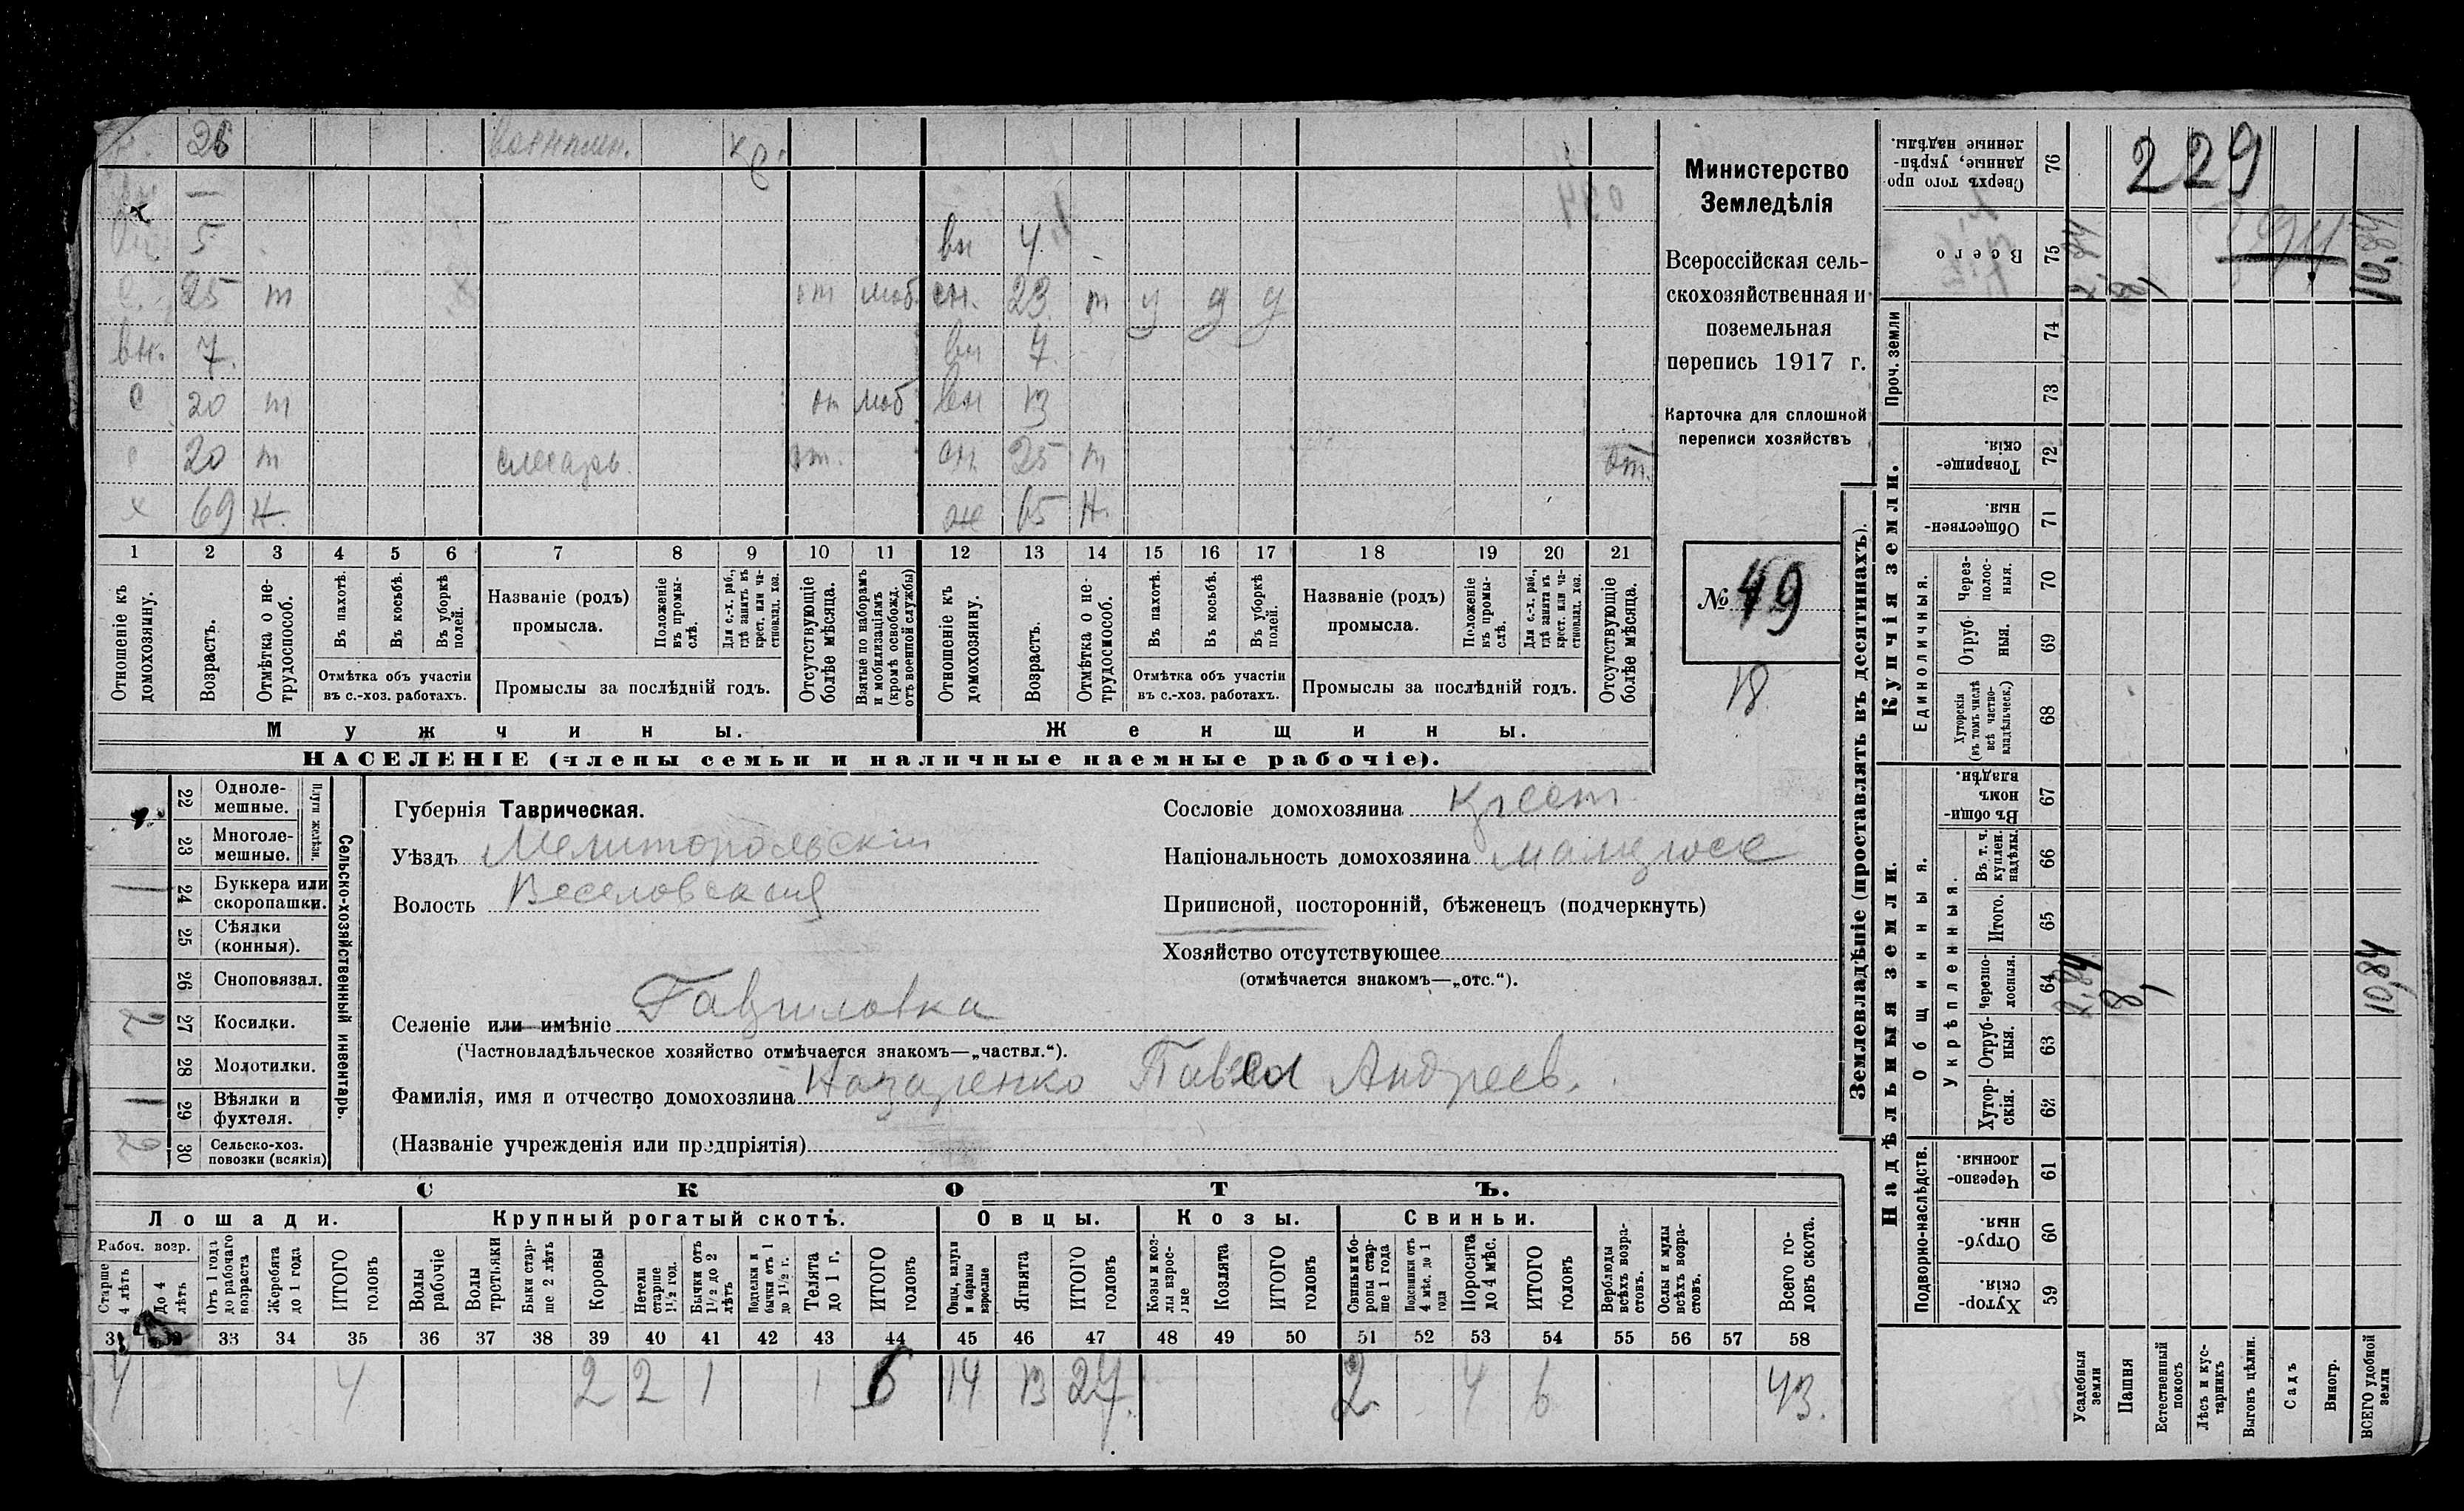 26 военплен. кр.
—
вн 5 вн 4
с. 25 т от моб. сн. 23 т у у у
вн. 7. вн 7
с 20 т от моб вн 13
с 20 т слесарь. от. сн. 25 т от.
х 69 н. ж 65 н.
1 2 3 4 5 6 7 8 9 10 11 12 13 14 15 16 17 18 19 20 21
Отношеніе къ домохозяину.
Возрастъ.
Отмѣтка о не-трудоспособ.
Въ пахотѣ.
Въ косьбѣ.
Въ уборкѣ полей.
Отмѣтка объ участіи
въ с.-хоз. работахъ.
Названіе (родъ)
промысла.
Положеніе въ промы-слѣ.
Для с.-х. раб., гдѣ занятъ въ крест. или ча-стновлад. хоз.
Промыслы за послѣдній годъ.
Отсутствующіе болѣе мѣсяца.
Взятые по наборамъ и мобилизаціямъ (кромѣ освобожд. отъ военной службы)
Отношеніе къ домохозяину.
Возрастъ.
Отмѣтка о не-трудоспособ.
Въ пахотѣ.
Въ косьбѣ.
Въ уборкѣ полей.
Отмѣтка объ участіи
въ с.-хоз. работахъ.
Названіе (родъ)
промысла.
Положеніе въ промы-слѣ.
Для с.-х. раб., гдѣ занята въ крест. или ча-стновлад. хоз.
Промыслы за послѣдній годъ.
Отсутствующіе болѣе мѣсяца.
Мужчины. Женщины.
НАСЕЛЕНІЕ (члены семьи и наличные наемные рабочіе).
Министерство
Земледѣлія
Всероссійская сель-
скохозяйственная и
поземельная
перепись 1917 г.
Карточка для сплошной
переписи хозяйствъ
№ 49
18
Сельско-хозяйственный инвентарь.
Плуги желѣзн.
22 Одноле-мешные.
23 Многоле-мешные.
1 24 Буккера или скоропашки.
25 Сѣялки (конныя).
26 Сноповязал.
2 27 Косилки.
28 Молотилки.
1 29 Вѣялки и фухтеля.
2 30 Сельско-хоз. повозки (всякія)
Губернія Таврическая.
Уѣздъ Мелитопольскій
Волость Веселовская
Сословіе домохозяина крест
Національность домохозяина малорос
Приписной, посторонній, бѣженецъ (подчеркнуть)
Хозяйство отсутствующее
(отмѣчается знакомъ—„отс.“).
Селеніе или имѣніе Гавриловка
(Частновладѣльческое хозяйство отмѣчается знакомъ—„частвл.“).
Фамилія, имя и отчество домохозяина Назаренко Павел Андреев.
(Названіе учрежденія или предпріятія)
СКОТЪ.
Лошади. Крупный рогатый скотъ. Овцы. Козы. Свиньи.
Рабоч. возр.
Старше 4 лѣтъ
До 4 лѣтъ
Отъ 1 года до рабочаго возраста
Жеребята до 1 года
ИТОГО головъ
Волы рабочіе
Волы третьяки
Быки стар-ше 2 лѣтъ
Коровы
Нетели старше 1½ год.
Бычки отъ 1½ до 2 лѣтъ
Подтелки и бычки отъ 1 до 1½ г.
Телята до 1 г.
ИТОГО головъ
Овцы, валухи и бараны взрослые
Ягнята
ИТОГО головъ
Козы и коз-лы взрос-лые
Козлята
ИТОГО головъ
Свиньи и бо-ровы стар-ше 1 года
Подсвинки отъ 4 мѣс. до 1 года
Поросята до 4 мѣс.
ИТОГО головъ
Верблюды всѣхъ возра-стовъ.
Ослы и мулы всѣхъ возра-стовъ.
Всего го-ловъ скота.
31 32 33 34 35 36 37 38 39 40 41 42 43 44 45 46 47 48 49 50 51 52 53 54 55 56 57 58
4 4 2 2 1 1 6 14 13 27. 2 4 6 43.
Землевладѣніе (проставлять въ десятинахъ).
Надѣльныя земли. Купчія земли. Проч. земли
Подворно-наслѣдств.
Общинныя.
Укрѣпленныя.
Единоличныя.
76 Сверхъ того про-данные, укрѣп-ленные надѣлы.
229
75 Всего 2,84 8, 10,84
74
73
72 Товарище-скія.
71 Обществен-ныя
70 Через-полос-ныя.
69 Отруб-ныя.
68 Хуторскія (въ томъ числѣ всѣ частно-владѣльческ.)
67 Въ общи-номъ владѣн.
66 Въ т. ч. куплен. надѣлы.
65 Итого.
64 Черезпо-лосныя. 2,84 8, 10,84
63 Отруб-ныя.
62 Хутор-скія.
61 Черезпо-лосныя.
60 Отруб-ныя.
59 Хутор-скія.
Усадебныя земли
Пашня
Естественный покосъ
Лѣсъ и кус-тарникъ
Выгонъ цѣлин.
Садъ
Виногр.
ВСЕГО удобной земли